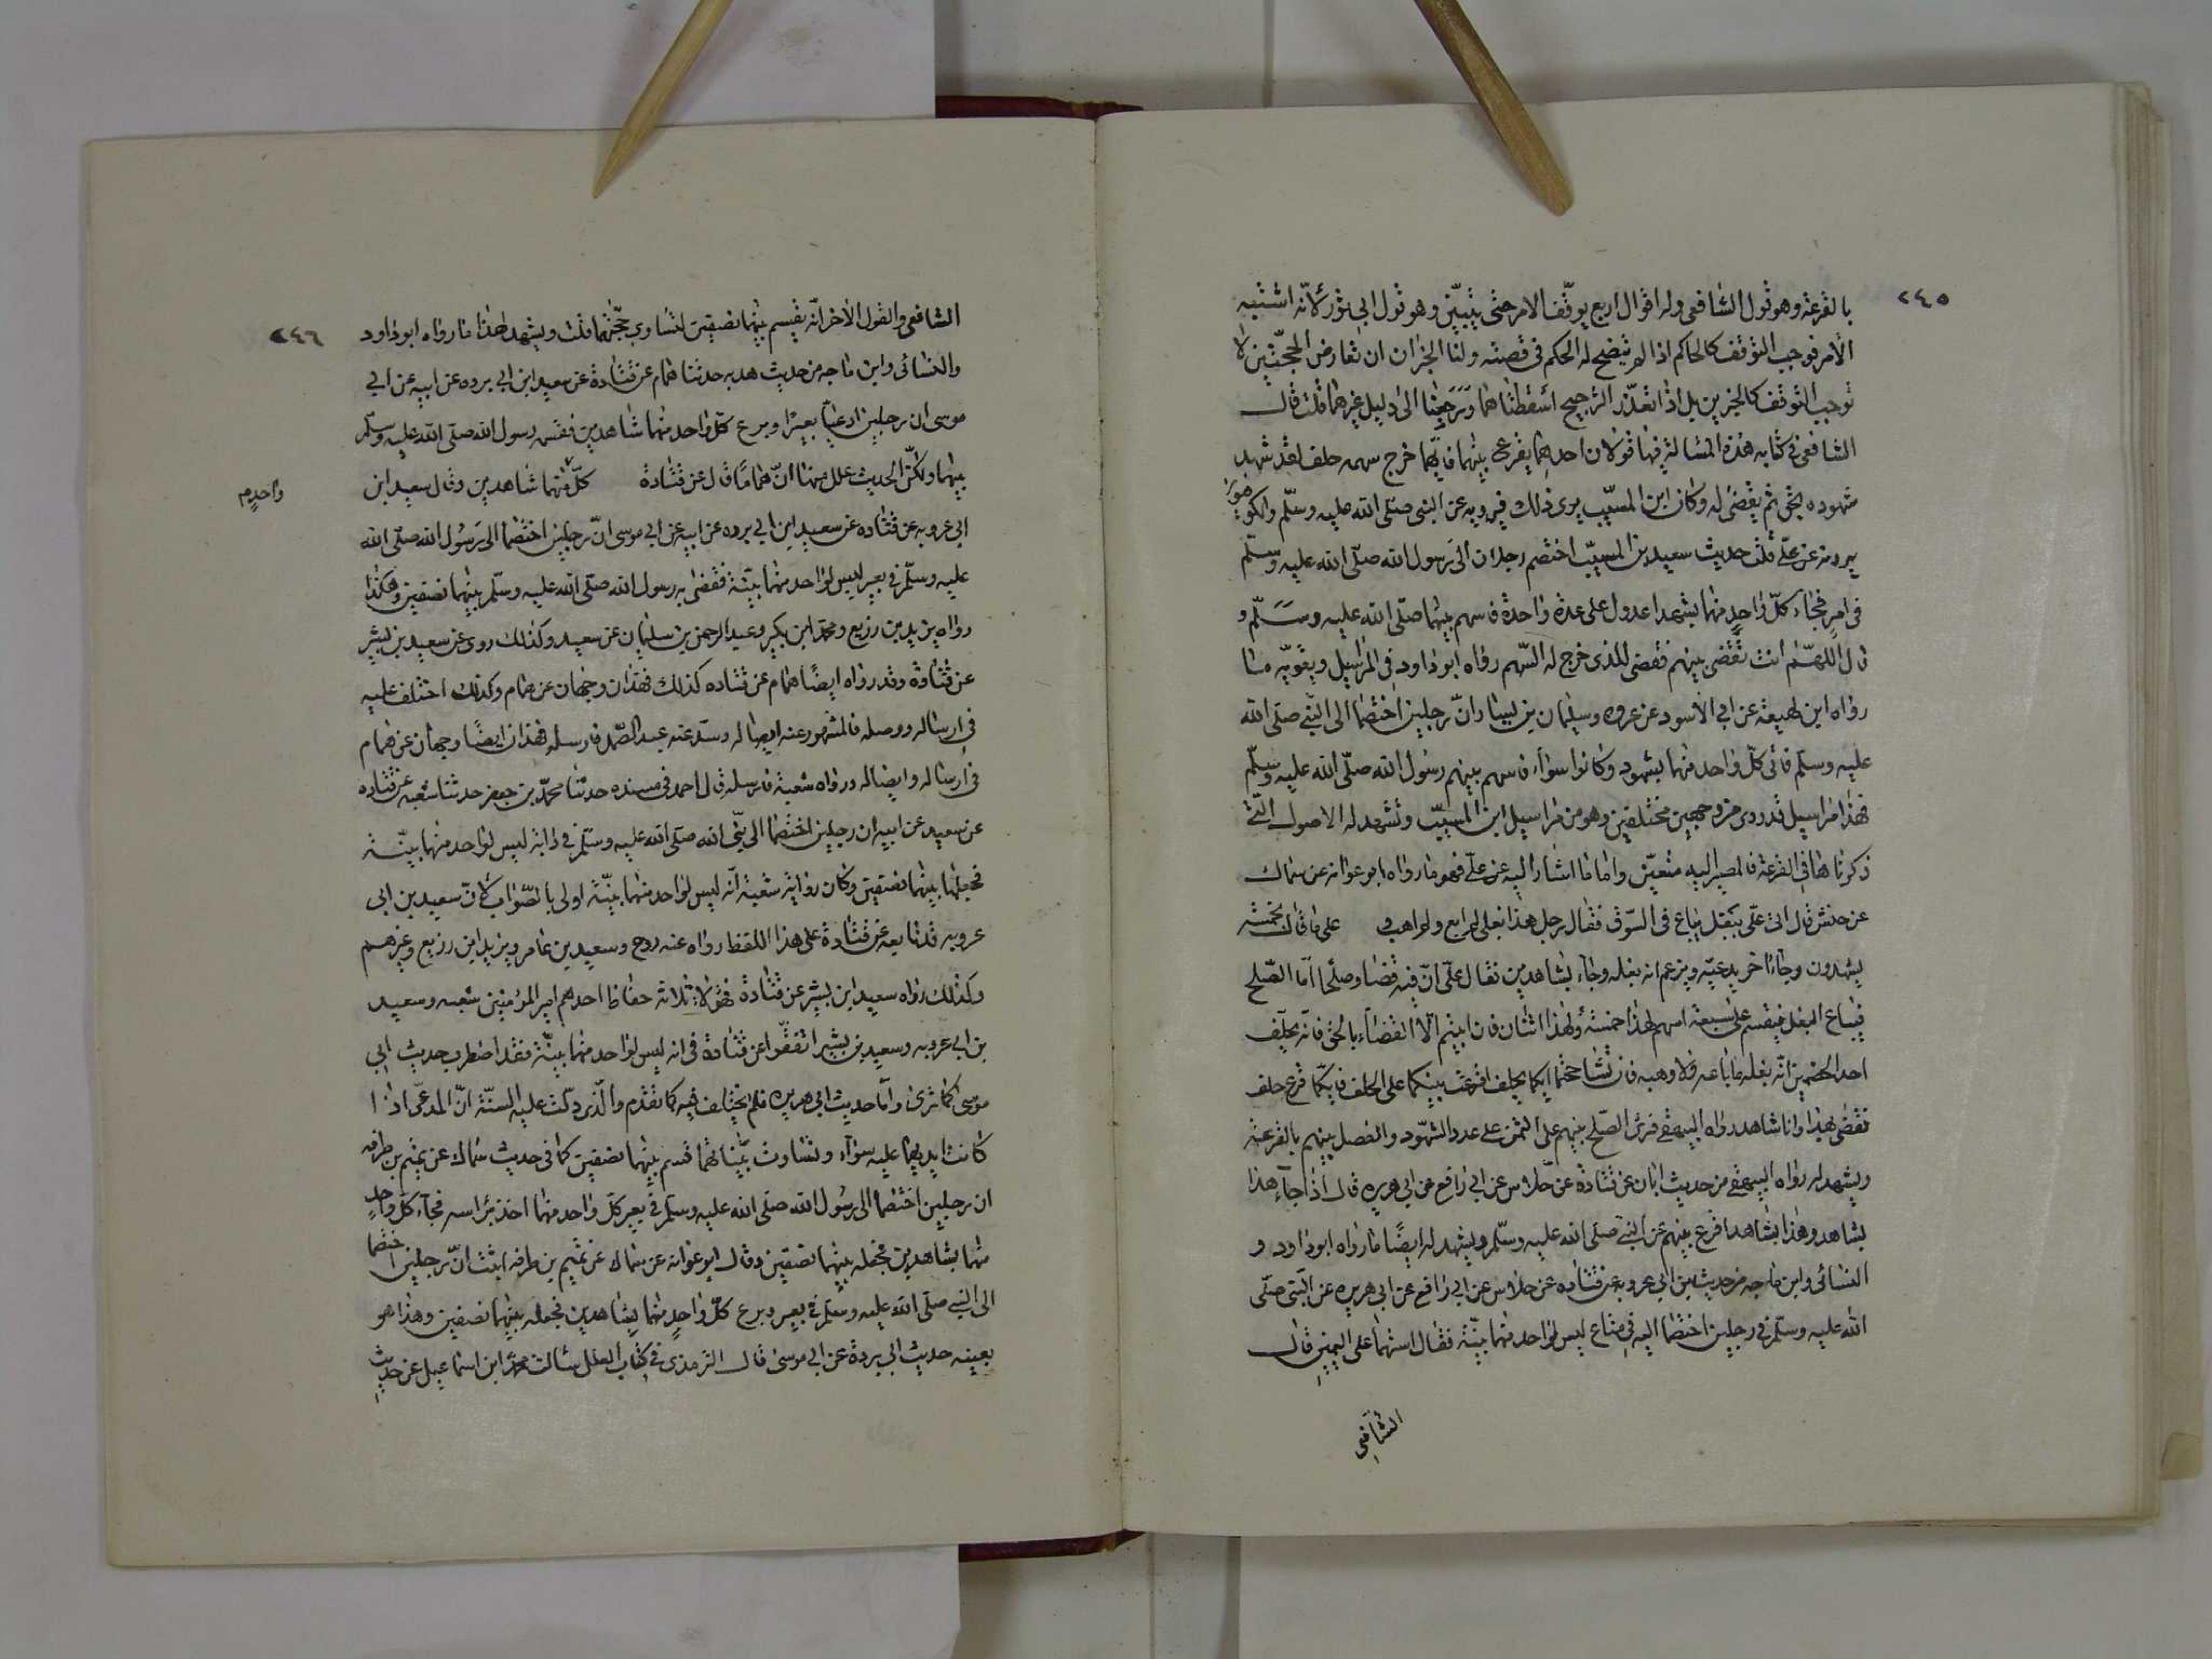 ٢٤٥
بالقرعة وهو قول الشافعي وله اقوال اربع يوقف الامر حتى يتبين وهو قول ابي ثور لانه اشتبه
الأمر فوجب التوقف كالحاكم اذا لم يتضح له الحكم في قصته ولنا الخبران ان تعارض الحجتين لا
توجب التوقف كالخبرين بل اذا تعذر الترجيح اسقطناهما ورجعنا الى دليل غيرهما قلت قال
الشافعي في كتابه هذه المسالة فيها قولان احدهما يقرع بينهما فايهما خرج سهمه حلف لقد شهد
شهوده بحق ثم يقضى له وكان ابن المسيب يرى ذلك فيرويه عن النبي صلى الله عليه وسلم والكوفيون
يروونه عن علي قلت حديث سعيد بن المسيب اختصم رجلان الى رسول الله صلى الله عليه وسلم
في امر فجاء كل واحد منهما بشهداء عدول على عدة واحدة فاسهم بينهما صلى الله عليه وسلم و
قال اللهم انت تقضي بينهم فقضى للذي خرج له السهم رواه ابو داود في المراسيل ويقويه ما
رواه ابن لهيعة عن ابي الأسود عن عروه وسليمان بن يسار ان رجلين اختصما الى النبي صلى الله
عليه وسلم فاتى كل واحد منهما بشهود وكانوا سواء فاسهم بينهم رسول الله صلى الله عليه وسلم
فهذا مراسيل قد روى من وجهين مختلفين وهو من مراسيل ابن المسيب وتشهد له الاصول التي
ذكرناها في القرعة فالمصير اليه متعين واما ما اشار اليه عن علي فهو ما رواه ابو عوانه عن سماك
عن حنش قال اتى علي ببغل يباع في السوق فقال رجل هذا بغلي لم ابع ولم اهب و على ما قال بخمسة
يشهدون وجاء اخر يدعيه ويزعم انه بغله وجاء بشاهدين فقال علي ان فيه قضا وصلحا اما الصلح
فيباع البغل فيقسم على سبعة اسهم لهذا خمسة ولهذا اثنان فان ابيتم الا القضاء بالحق فانه يحلف
احد الخصمين انه بغله ما باعه ولا وهبه فان تشاححتما ايكما يحلف اقرعت بينكما على الحلف فايكما قرع حلف
فقضى بهذا وانا شاهد رواه البيهقي فرأى الصلح بينهم على الثمن على عدد الشهود والفصل بينهم بالقرعة
ويشهد له رواه البيهقي من حديث ابان عن قتادة عن خلاس عن ابي رافع عن ابي هريره قال اذا جاء هذا
بشاهد وهذا بشاهد اقرع بينهم عن النبي صلى الله عليه وسلم ويشهد له ايضا ما رواه ابو داود و
النسائى وابن ماجه من حديث بن ابي عروبه عن قتاده عن خلاس عن ابي رافع عن ابي هريره عن النبي صلى
الله عليه وسلم في رجلين اختصما اليه في متاع ليس لواحد منهما بينة فقال استهما على اليمين قال
الشافعي
٢٤٦
الشافعي والقول الآخر انه يقسم بينهما نصفين لتساوي حجتهما قلت ويشهد لهذا ما رواه ابو داود
والنسائى وابن ماجه من حديث هدبه حدثنا همام عن قتادة عن سعيد ابن ابي برده عن ابيه عن ابي
موسى ان رجلين ادعيا بعيرا وبرع كل واحد منهما شاهدين فقسم رسول الله صلى الله عليه وسلم
بينهما ولكن الحديث علل منها ان هماما قال عن قتادة كل منهما شاهدين وقال سعيد ابن
واحدم
ابي عروبه عن قتاده عن سعيد ابن ابي برده عن ابيه عن ابي موسى ان رجلين اختصما الى رسول الله صلى الله
عليه وسلم في بعير ليس لواحد منهما بينة فقضى به رسول الله صلى الله عليه وسلم بينهما نصفين وهكذا
رواه يزيد بن زريع ومحمد ابن بكير وعبد الرحمن بن سليمان عن سعيد وكذلك روى عن سعيد بن بشير
عن قتادة وقد رواه ايضا همام عن قتاده كذلك فهذان وجهان عن همام وكذلك اختلف عليه
في ارساله ووصله فالمشهور عنه ايصاله وسد عنه عبد الصمد فارسله فهذان ايضا وجهان عن همام
في ارساله وايصاله ورواه شعبة فارسله قال احمد في مسنده حدثنا محمد بن جعفر حدثنا شعبه عن قتاده
عن سعيد عن ابيه ان رجلين اختصما الى نبي الله صلى الله عليه وسلم في دابة ليس لواحد منهما بينة
فجعلها بينهما نصفين وكان رواية شعبة انه ليس لواحد منهما بينة اولى بالصواب لان سعيد بن ابي
عروبه قد تابعه عن قتادة على هذا اللفظ رواه عنه روح وسعيد بن عامر ويزيد ابن زريع وغيرهم
وكذلك رواه سعيد ابن بشير عن قتادة فهؤلاء ثلاثة حفاظ احدهم امير المؤمنين شعبه وسعيد
بن ابي عروبه وسعيد بن بشير اتفقوا عن قتادة في انه ليس لواحد منهما بينة فقد اضطرب حديث ابي
موسى كما ترى واما حديث ابي هريره فلم يختلف فيه كما تقدم والذي دلت عليه السنة ان المدعى اذا
كانت ايديهما عليه سواء وتساوت بيناتهما قسم بينهما نصفين كما في حديث سماك عن تميم بن طرفه
ان رجلين اختصما الى رسول الله صلى الله عليه وسلم في بعير كل واحد منهما اخذ براسه فجاء كل واحد
منهما بشاهدين فجعله بينهما نصفين وقال ابو عوانة عن سماك عن تميم بن طرفه انبئت ان رجلين اختصما
الى النبي صلى الله عليه وسلم في بعير وبرع كل واحد منهما بشاهدين فجعله بينهما نصفين وهذا هو
بعينه حديث ابي بردة عن ابي موسى قال الترمذي في كتاب العلل سالت محمد ابن اسماعيل عن حديث